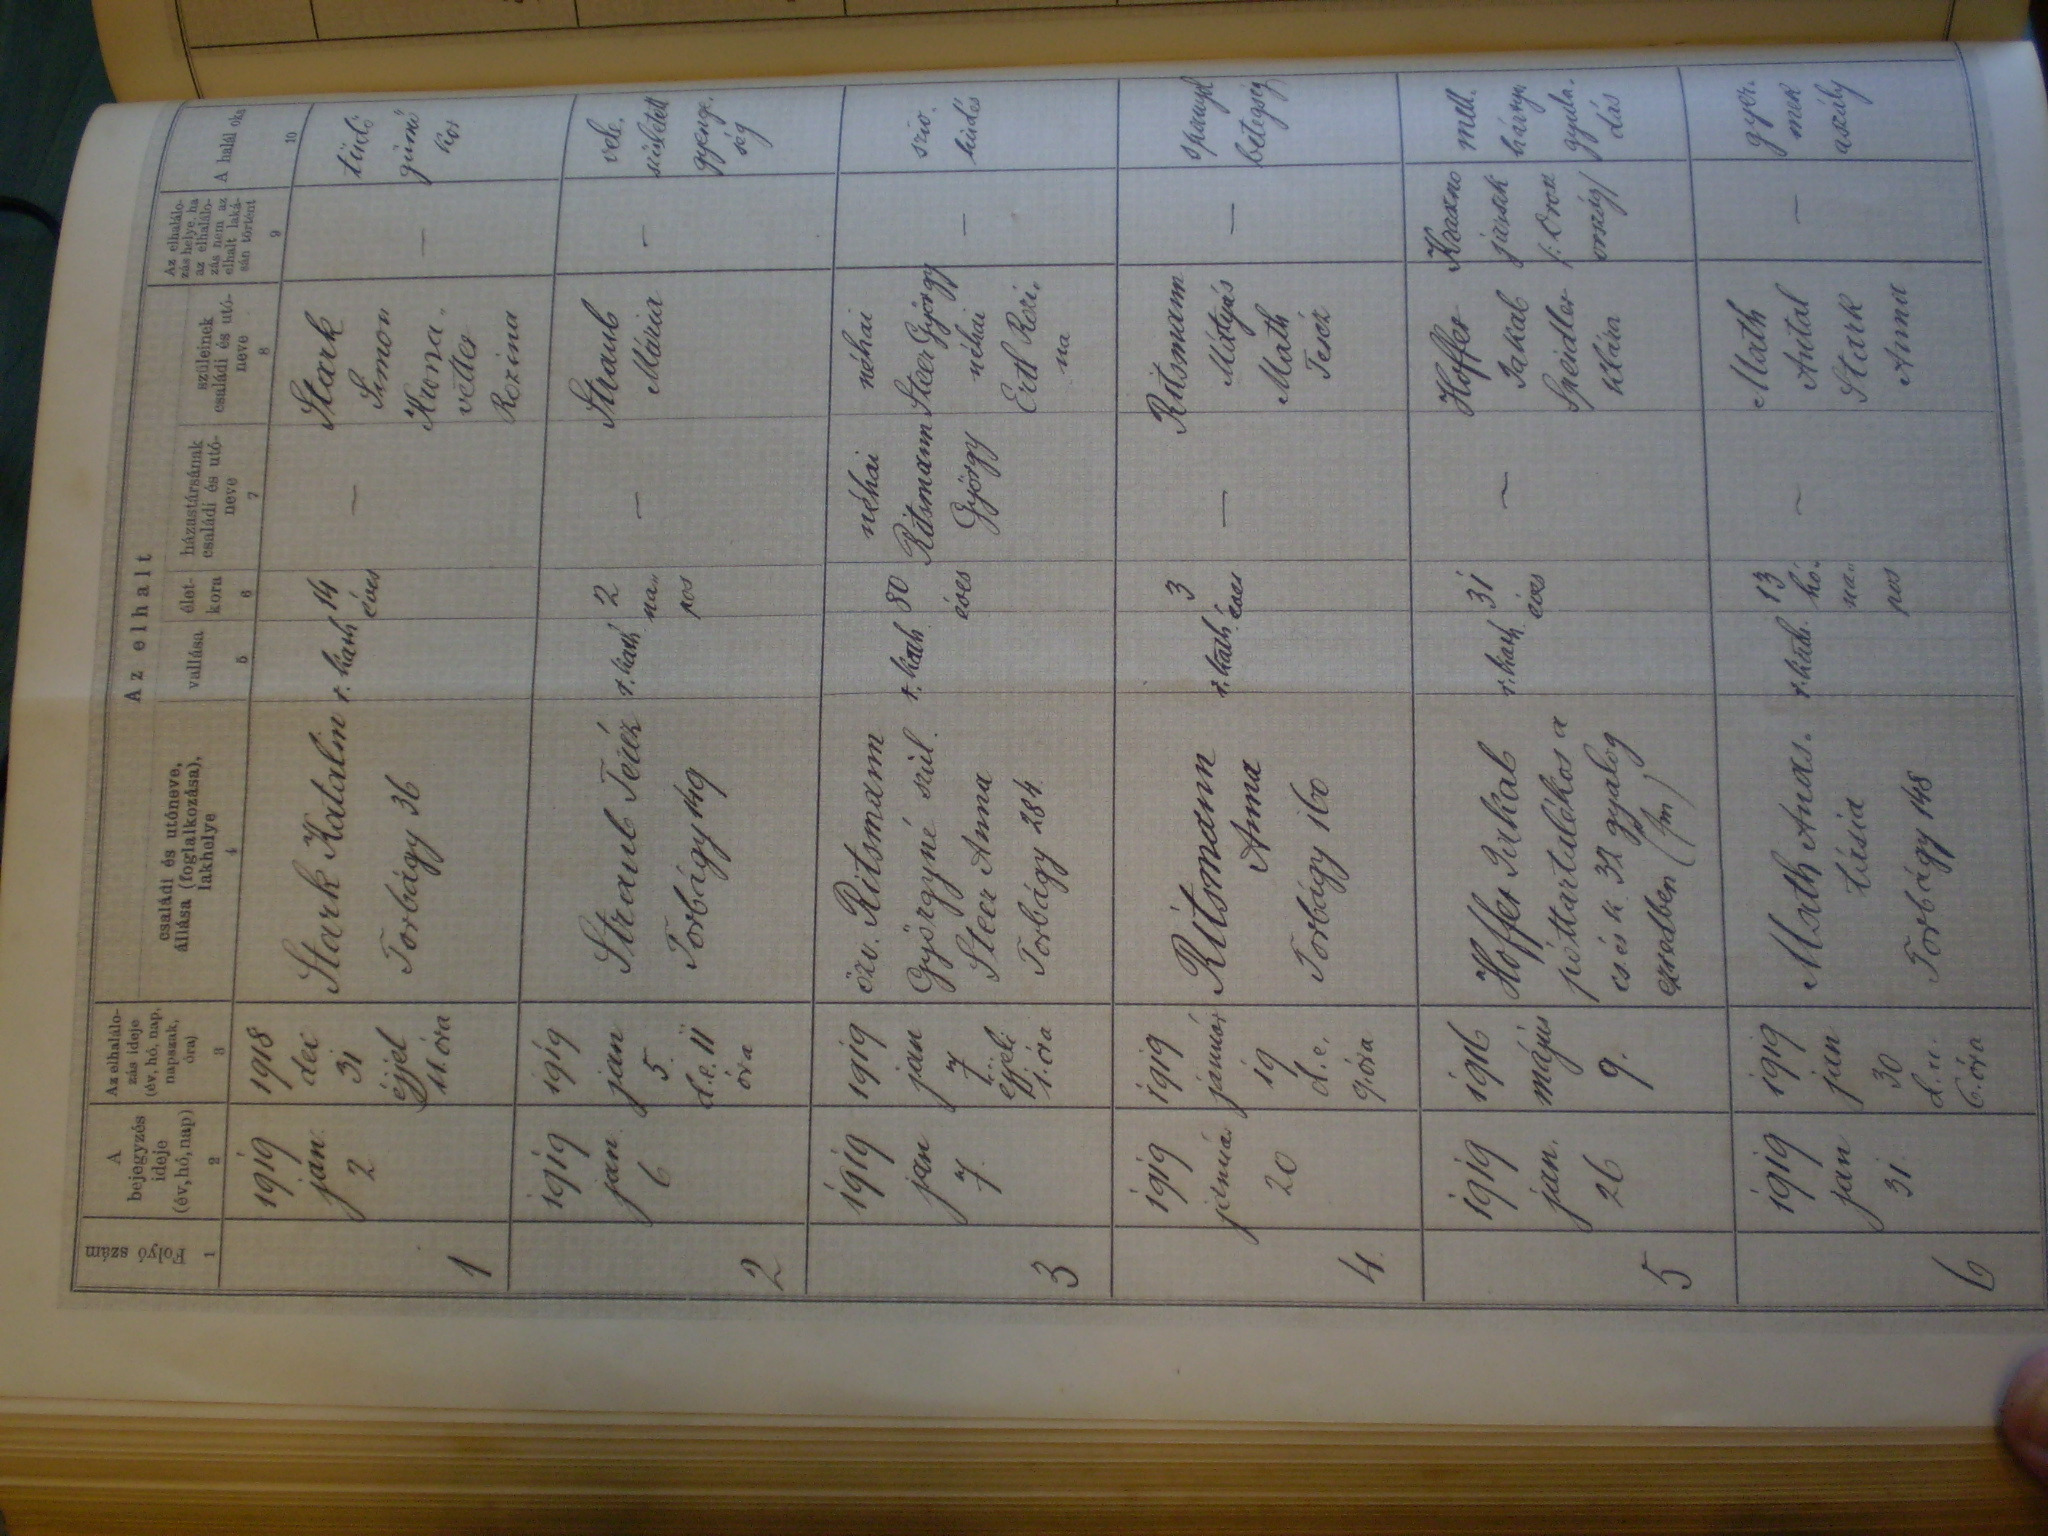 Az elhalt
Folyó szám
A bejegyzés ideje (év, hó, nap)
Az elhalálozás ideje (év, hó, nap, napszak, óra)
családi és utóneve, állása (foglalkozása), lakhelye
vallása
életkora
házastársának családi és utóneve
szüleinek családi és utóneve
Az elhalálozás helye, ha az elhalálozás nem az elhalt lakásán történt
A halál oka
1 2 3 4 5 6 7 8 9 10
1
1919
jan.
2
1918
dec
31
éjjel
11. óra
Stark Katalin
Torbágy 36
r. kath
14
éves
—
Stark
Simon
Hona„
vetter
Rozina
—
tüdő
gümő
kor
2
1919
jan
6
1919
jan
5.
d. e. 11
óra
Straub Teréz
Torbágy 149
r. kath.
2
na„
pos
—
Straub
Mária
—
vele.
született
gyenge.
ség
3
1919
jan
7.
1919
jan
7
éjjeli
1. óra
özv. Ritsmann
Györgyné szül.
Steer Anna
Torbágy 284
r. kath.
80
éves
néhai
Ritsmann
György
néhai
Steer György
néhai
Ertl Rozi.
na
—
szív.
hüdés
4.
1919
január
20
1919
január
19
d. e.
9. óra
Ritsmann
Anna
Torbágy 160
r. kath.
3
éves
—
Ritsmann
Mátyás
Math
Teréz
—
spanyol
betegség
5
1919
jan.
26
1916
május
9.
Hoffer Jakab
póttartalékos a
cs és k. 32 gyalog
ezredben
r. kath.
31
éves
—
Hoffer
Jakab
Speidler
Klára
Krasno
járások
országi
mell.
hártya
gyula.
dás
6
1919
jan
31.
1919
jan
30
d. u.
6. óra
Math Anas.
tásia
Torbágy 148
r. kath.
13
hó.
na„
pos
—
Math
Antal
Stark
Anna
—
gyer.
mek
aszály